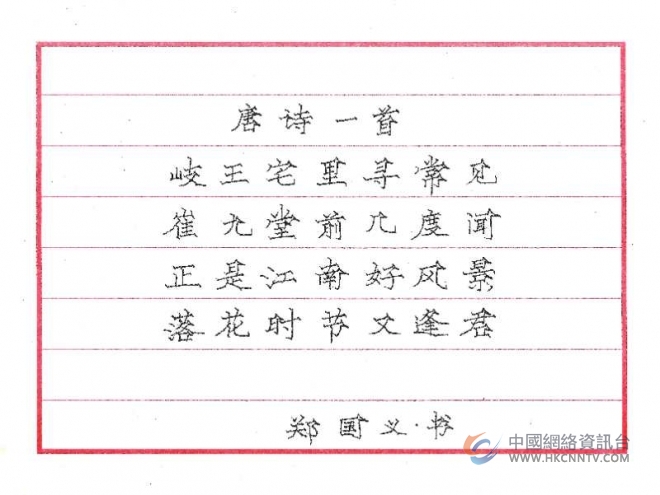 唐诗一首
岐王宅里寻常见
崔九堂前几度闻
正是江南好风景
落花时节又逢君
郑国义·书
中國網絡資訊台
WWW.HKCNNTV.COM